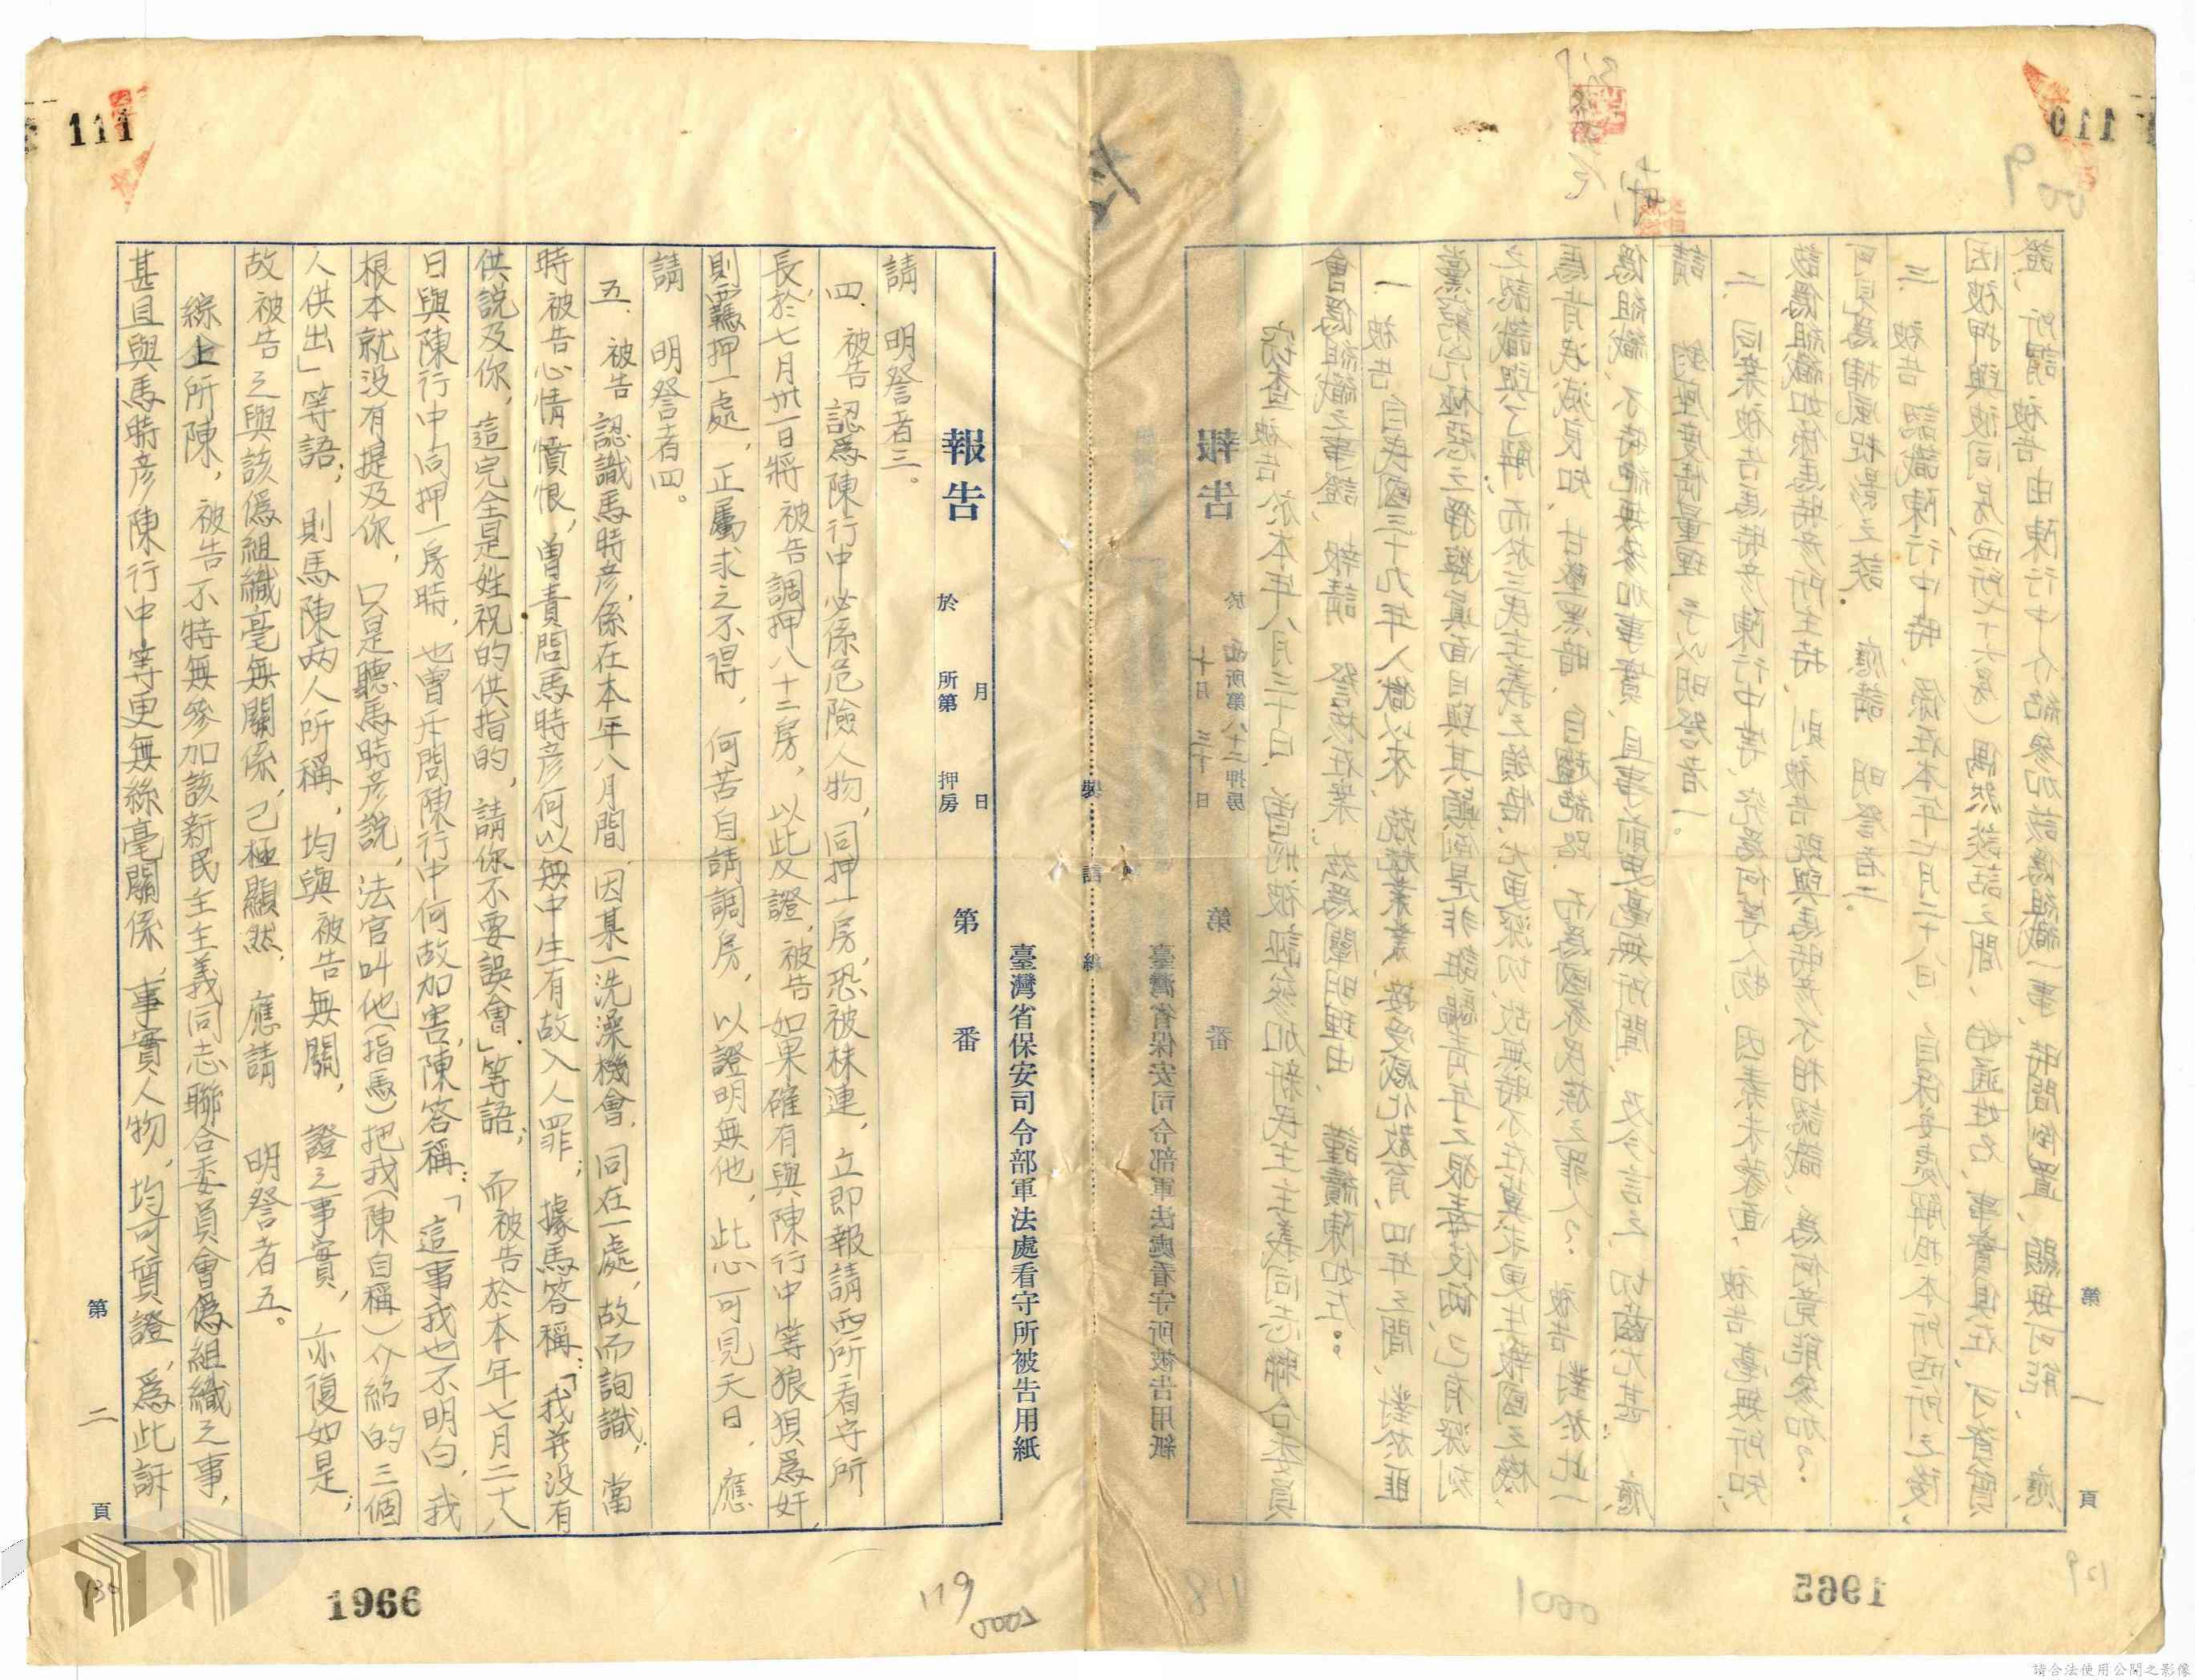 110
009
報告
於西所第八十二押房
十月三十日
第 番
臺灣省保安司令部軍法處看守所被告用紙
竊查被告於本年八月三十日,曾將被誣參加新民主主義同志聯合委員
會偽組織之事證,報請 詧核在案,茲為闡明理由, 謹續陳如左:
一、被告自民國三十九年入獄以來,兢兢業業,接受感化教育,四年之間,對於匪
黨窮凶極惡之猙獰真面目與其顛倒是非誆騙青年之狠毒伎倆,已有深刻
之認識與了解,而於三民主義之領悟,尤更深切,故無時不在冀求更生報國之機,
馬肯泯滅良知,甘墜黑暗,自趨絕路,而為國家民族之罪人?被告對於此一
偽組織,不特絕無參加事實,且事前更毫無所聞,及今言之,切齒尤甚, 應
請 鈞座度情量理,予以明詧者一。
二、同案被告馬時彥陳行中等,究為何等人物,因素未蒙面,被告毫無所知,
該偽組織如係馬時彥所主持,則被告既與馬時彥不相認識,為何竟能參加?
可見為捕風捉影之談, 應請 明詧者二。
三、被告認識陳行中時,係在本年七月二十八日,自保安處解抵本所西所之後,
因被押與彼同房(西所七十六房)偶然談話之間,始通姓名,事實俱在,可資質
證,所謂被告由陳行中介紹參加該偽組織一事,時間倒置,顯無可能, 應
第 一 頁
1965
0001
118
129
裝 訂 線
111
報告
於 所第 押房
月 日
第 番
臺灣省保安司令部軍法處看守所被告用紙
請 明詧者三。
四、被告認為陳行中必係危險人物,同押一房,恐被株連,立即報請西所看守所
長於七月卅一日將被告調押八十二房,以此反證,被告如果確有與陳行中等狼狽為奸,
則羈押一處,正屬求之不得,何苦自請調房,以證明無他,此心可見天日, 應
請 明詧者四。
五、被告認識馬時彥,係在本年八月間,因某一洗澡機會,同在一處,故而詢識,當
時被告心情憤恨,曾責問馬時彥何以無中生有故入人罪;據馬答稱:「我并沒有
供說及你,這完全是姓祝的供指的,請你不要誤會」等語;而被告於本年七月二十八
日與陳行中同押一房時,也曾斥問陳行中何故加害,陳答稱:「這事我也不明白,我
根本就沒有提及你,只是聽馬時彥說,法官叫他(指馬)把我(陳自稱)介紹的三個
人供出」等語;則馬陳兩人所稱,均與被告無關,證之事實,亦復如是;
故被告之與該偽組織毫無關係,已極顯然, 應請 明詧者五。
綜上所陳,被告不特無參加該新民主主義同志聯合委員會偽組織之事,
甚且與馬時彥陳行中等更無絲毫關係,事實人物,均可質證,為此訴
第 二 頁
1966
119
0002
130
請合法使用公開之影像